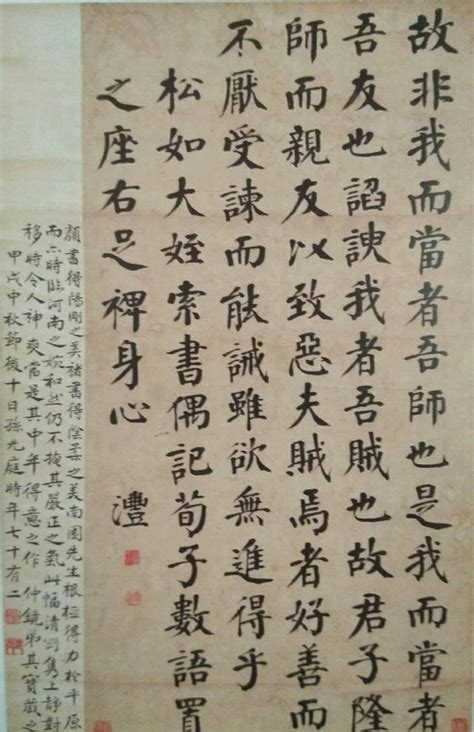 故非我而當者吾師也是我而當者
吾友也諂諛我者吾賊也故君子隆
師而親友以致惡夫賊焉者好善而
不厭受諫而能誡雖欲無進得乎
松如大姪索書偶記荀子數語置
之座右足裨身心 灃
顏書得陽剛之美褚書得陰柔之美南園先生根柢得力於平原
而亦時臨河南之婉和然仍不掩其嚴正之氣此幅清剛雋上靜對
移時令人神爽當是其中年得意之作 仲鏡弟其寶藏之
甲戌中秋節後十日孫光庭時年七十有二